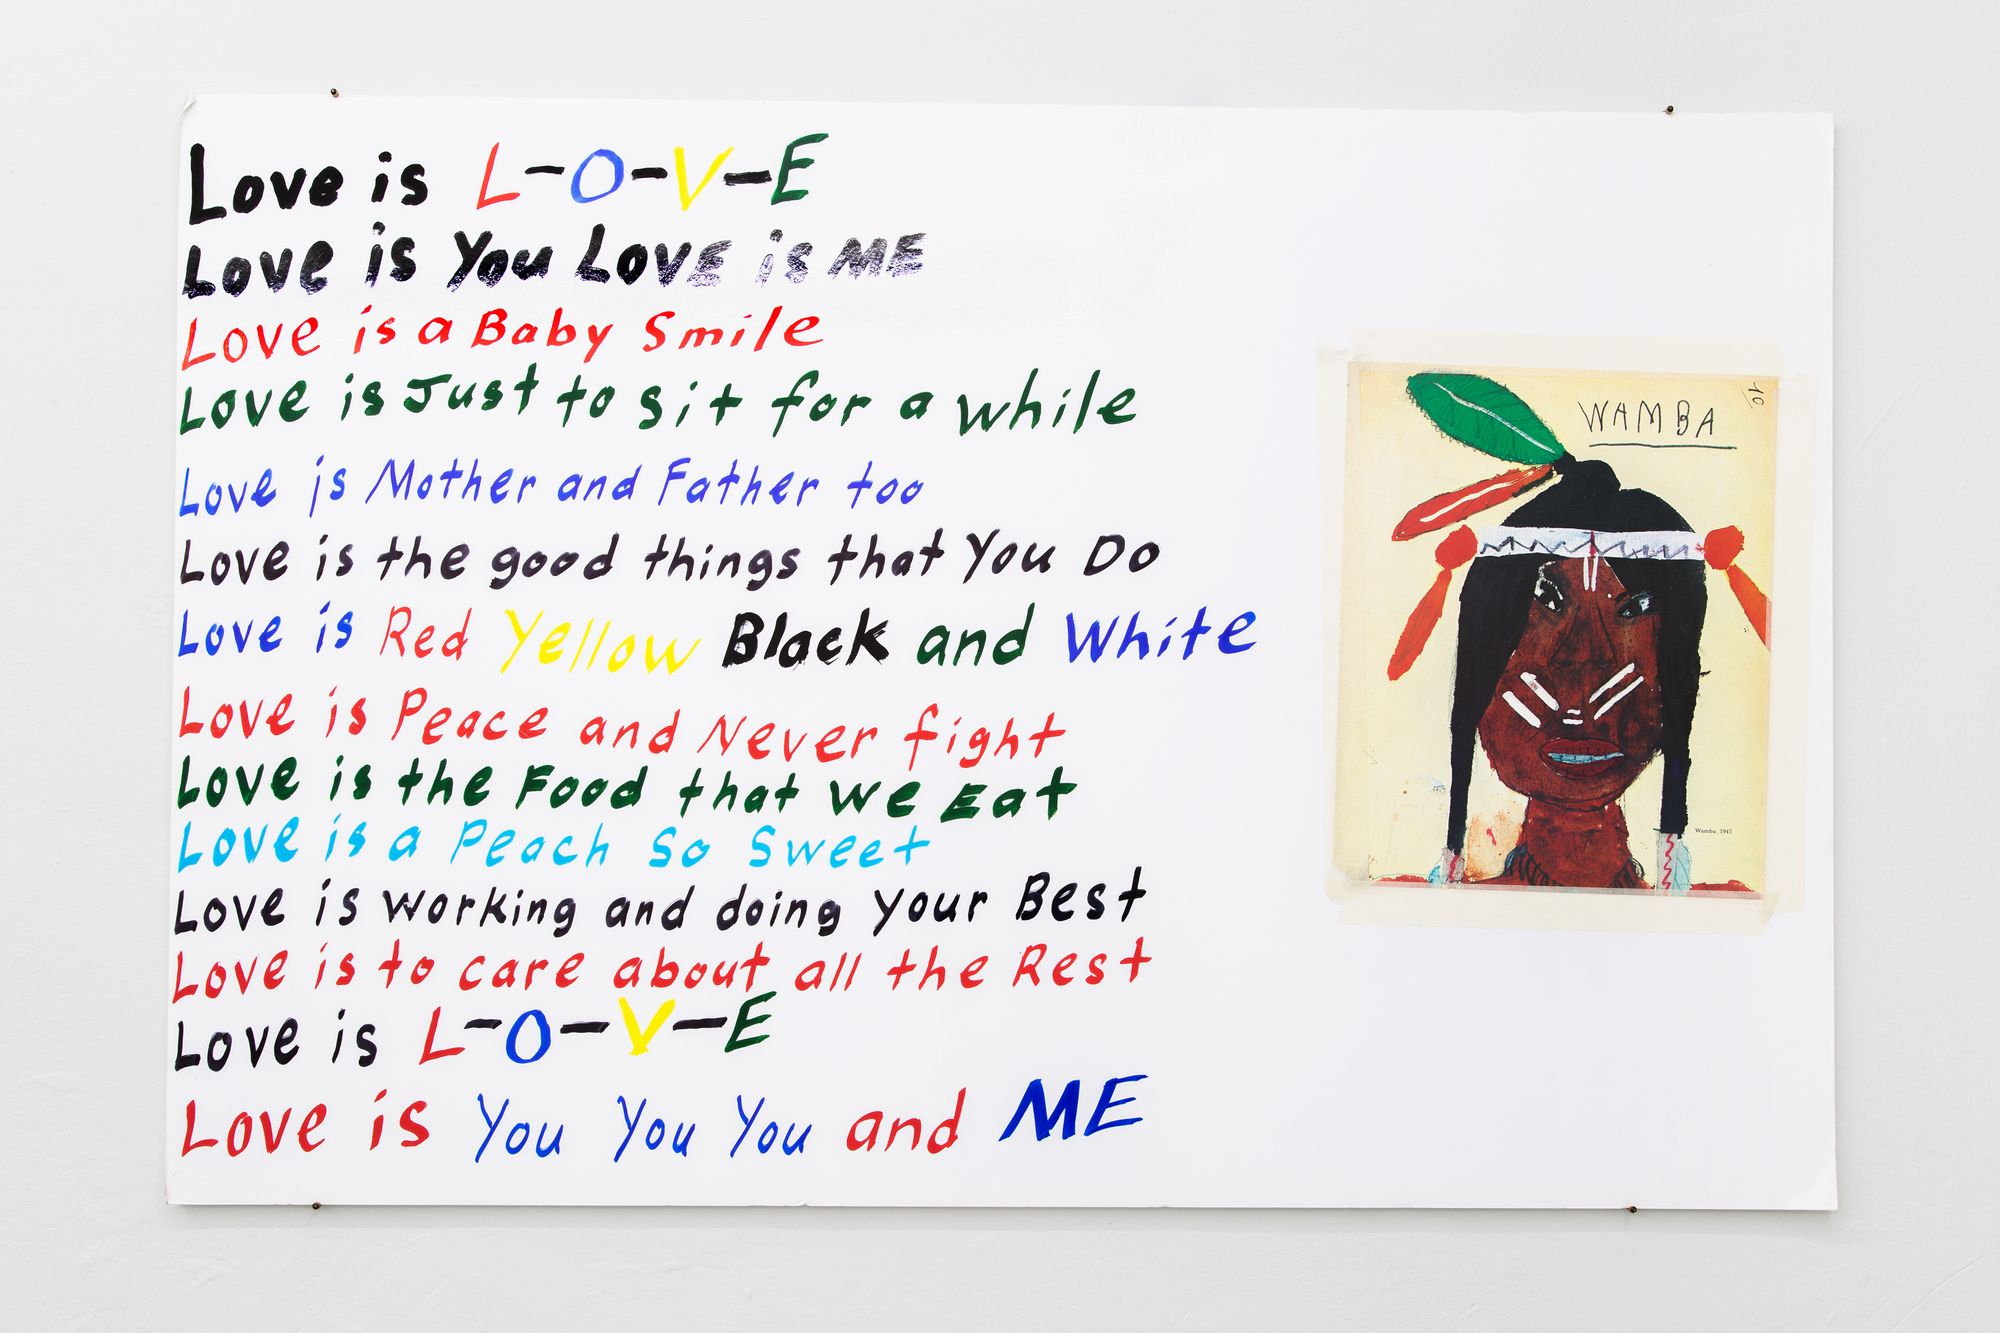 Love is L-O-V-E
Love is You Love is ME
Love is a Baby Smile
Love is Just to sit for a while
Love is Mother and Father too
Love is the good things that You Do
Love is Red Yellow Black and White
Love is Peace and Never fight
Love is the Food that We Eat
Love is a Peach So Sweet
Love is working and doing Your Best
Love is to care about all the Rest
Love is L-O-V-E
Love is You You You and ME
WAMBA
Wamba, 1947